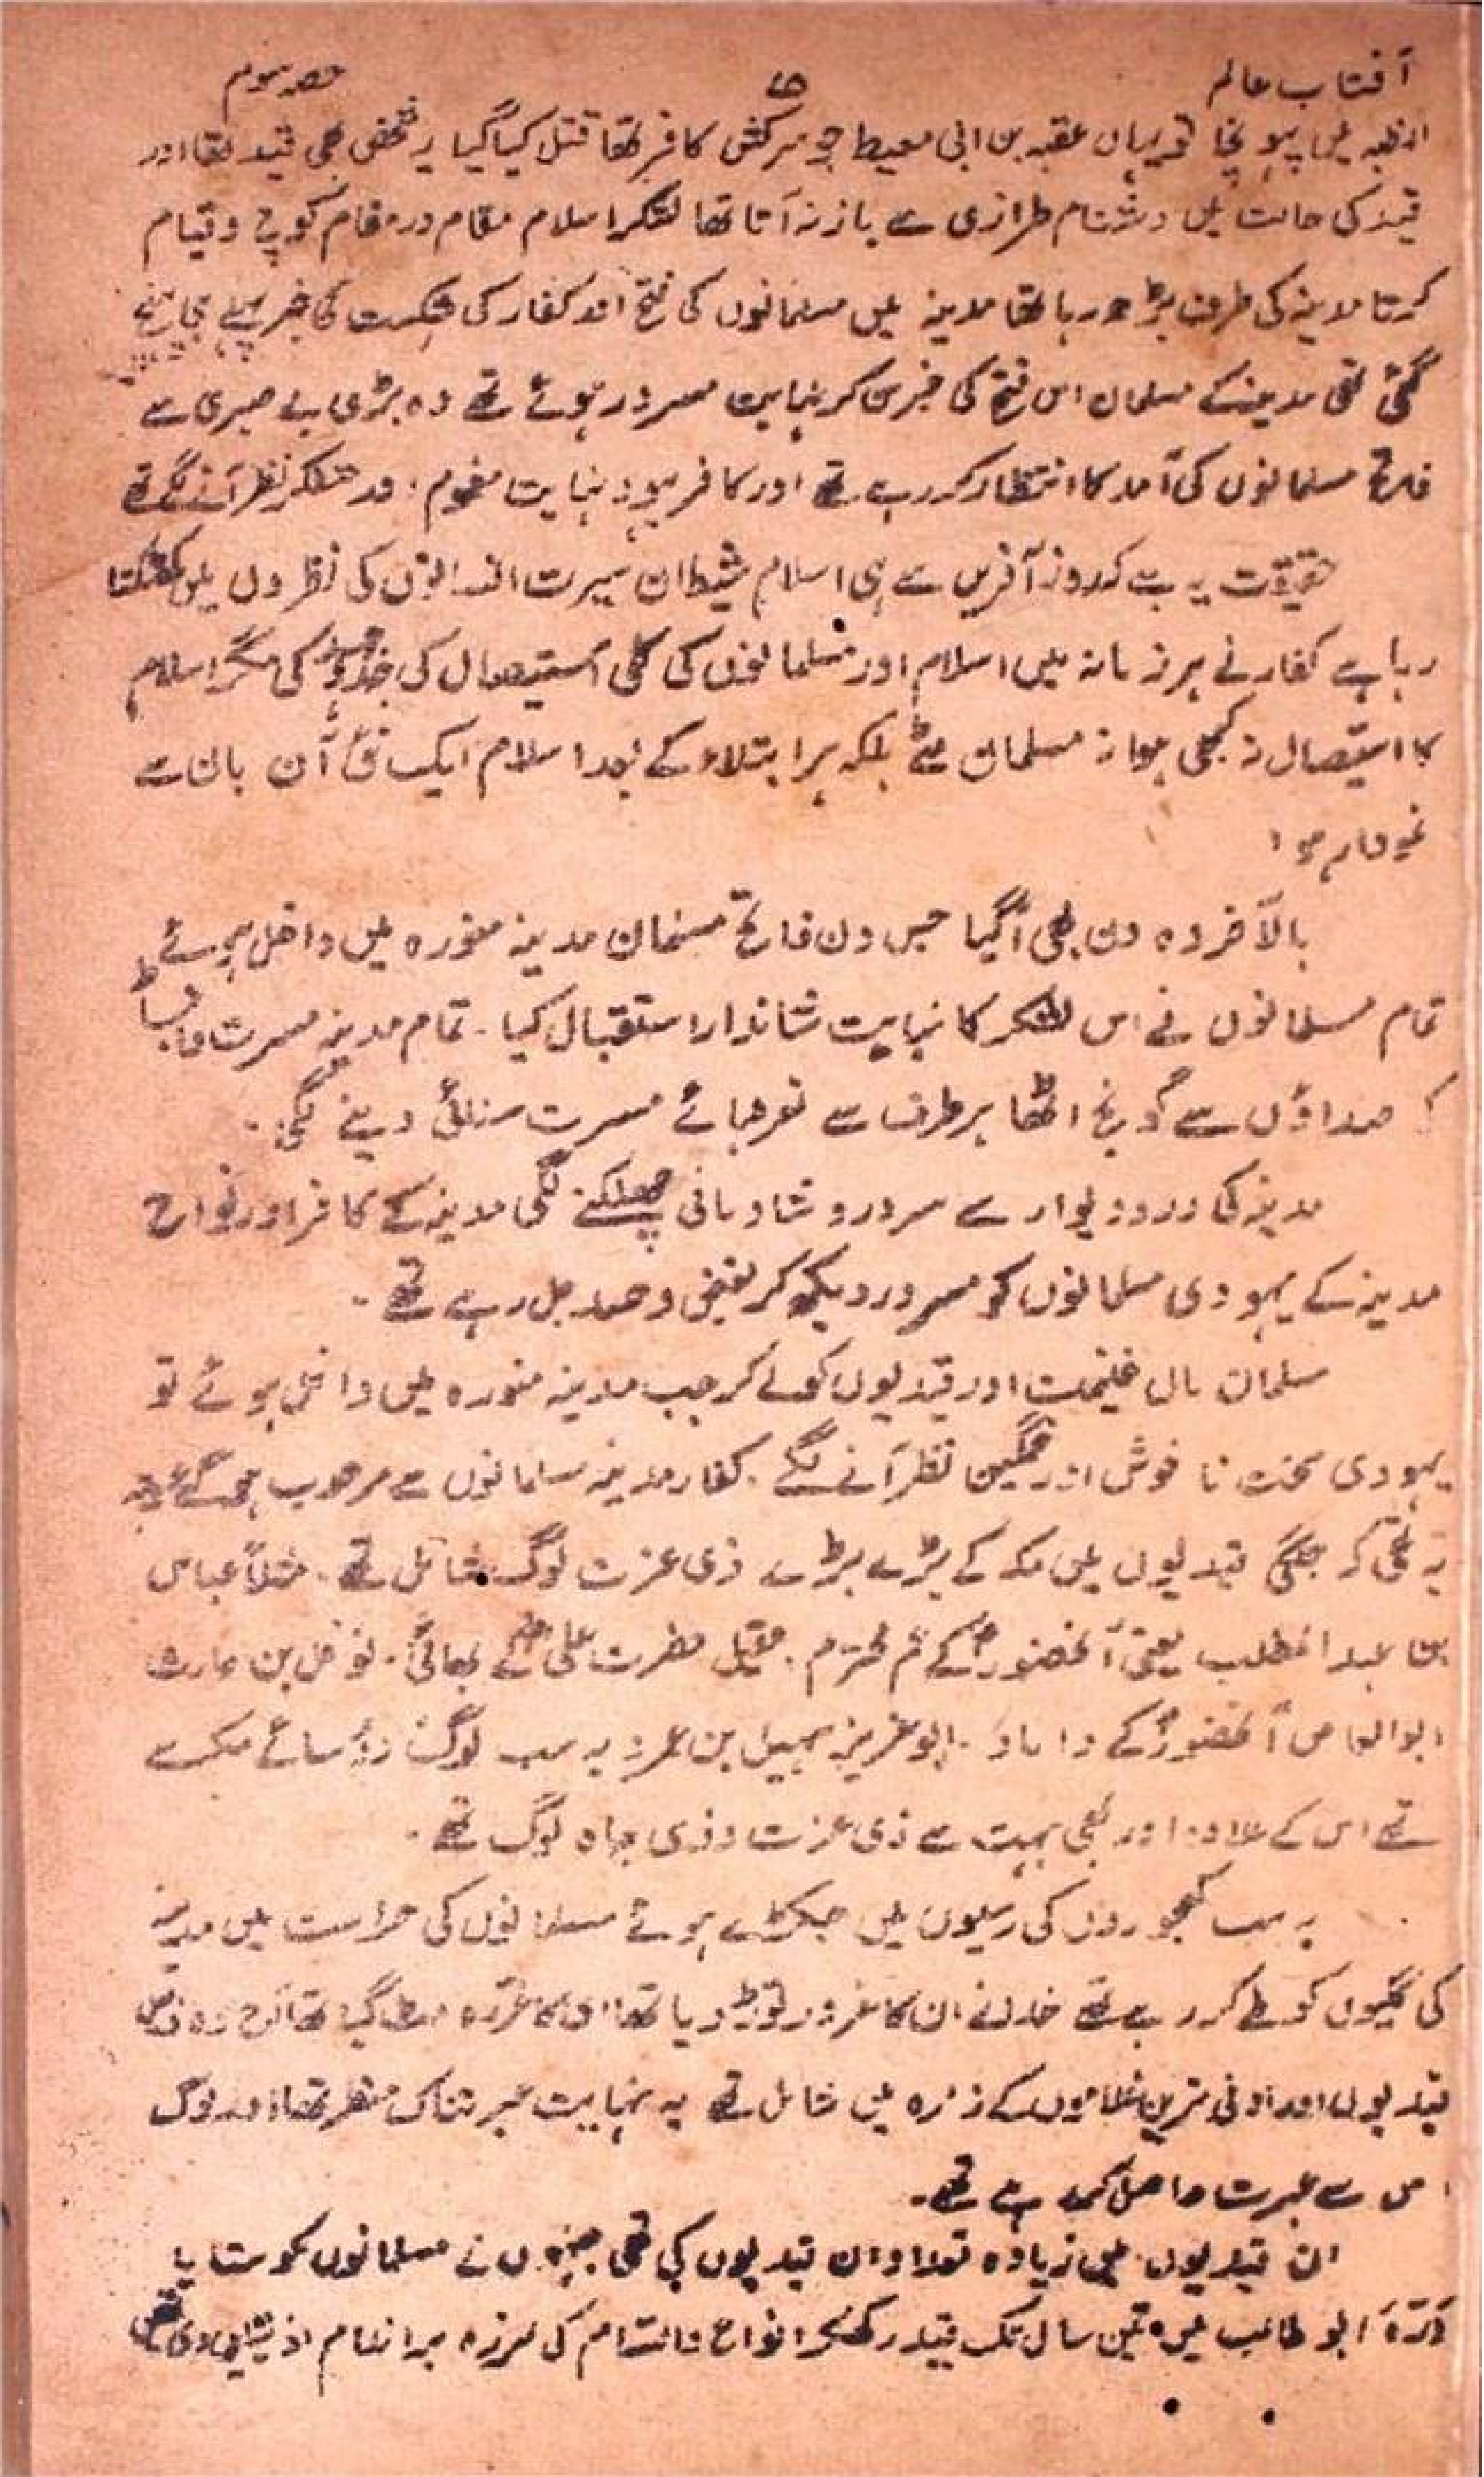 آفتاب عالم ۵ حصہ سوم
الظبیہ میں پہونچا تو یہاں عقبہ بن ابی معیط جو سرکش کافر تھا قتل کیا گیا یہ شخص بھی قید تھا اور
قید کی حالت میں دشنام طرازی سے باز نہ آتا تھا لشکر اسلام مقام در مقام کوچ و قیام
کرتا مدینہ کی طرف بڑھ رہا تھا مدینہ میں مسلمانوں کی فتح اور کفار کی شکست کی خبر پہلے ہی پہنچ
گئی تھی مدینہ کے مسلمان اس فتح کی خبر سن کر نہایت مسرور ہوئے تھے وہ بڑی بے صبری سے
فاتح مسلمانوں کی آمد کا انتظار کر رہے تھے اور کافر یہود نہایت مغموم اور متفکر نظر آنے لگے تھے
حقیقت یہ ہے کہ روز آفریں سے ہی اسلام شیطان سیرت انسانوں کی نظروں میں کھٹکتا
رہا ہے کفار نے ہر زمانہ میں اسلام اور مسلمانوں کی کلی استیصال کی جدوجہد کی مگر اسلام
کا استیصال نہ کبھی ہوا نہ مسلمان مٹے بلکہ ہر ابتلاء کے بعد اسلام ایک نئی آن بان سے
نمودار ہوا
بالآخر وہ دن بھی آگیا جس دن فاتح مسلمان مدینہ منورہ میں داخل ہوئے
تمام مسلمانوں نے اس لشکر کا نہایت شاندار استقبال کیا ۔ تمام مدینہ مسرت و انبساط
کی صداؤں سے گونج اٹھا ہر طرف سے نعرہائے مسرت سنائی دینے لگی ۔
مدینہ کی در و دیوار سے سرور و شادمانی چھلکنے لگی مدینہ کے کافر اور نواح
مدینہ کے یہودی مسلمانوں کو مسرور دیکھ کر بغض و حسد جل رہے تھے ۔
مسلمان مال غنیمت اور قیدیوں کو لے کر جب مدینہ منورہ میں داخل ہوئے تو
یہودی سخت نا خوش اور غمگین نظر آنے لگے ۔ کفار مدینہ مسلمانوں سے مرعوب ہو گئے وجہ
یہ تھی کہ جنگی قیدیوں میں مکہ کے بڑے بڑے ذی عزت لوگ شامل تھے ۔ مثلاً عباس
بن عبدالمطلب یعنی آنحضورؐ کے عم محترم ۔ عقیل حضرت علیؓ کے بھائی ۔ نوفل بن حارث
ابوالعاص آنحضورؐ کے داماد ۔ ابو عزیز سہیل بن عمرو یہ سب لوگ رؤسائے مکہ سے
تھے اس کے علاوہ اور بھی بہت سے ذی عزت و ذی جاہ لوگ تھے ۔
یہ سب کھجوروں کی رسیوں میں جکڑے ہوئے مسلمانوں کی حراست میں مدینہ
کی گلیوں کو طے کر رہے تھے خدا نے ان کا غرور توڑ دیا تھا ان کا غرہ مٹ گیا تھا آج وہ
قیدیوں اور ادنی ترین غلاموں کے زمرہ میں شامل تھے یہ نہایت عبرتناک منظر تھا اور لوگ
اس سے عبرت حاصل کر رہے تھے ۔
ان قیدیوں میں زیادہ تعداد ان قیدیوں کی تھی جنہوں نے مسلمانوں کو ستایا
درّہ ابو طالب میں تین سال تک قید رکھ کر انواع و اقسام کی لرزہ بر اندام اذیتیں دی تھی